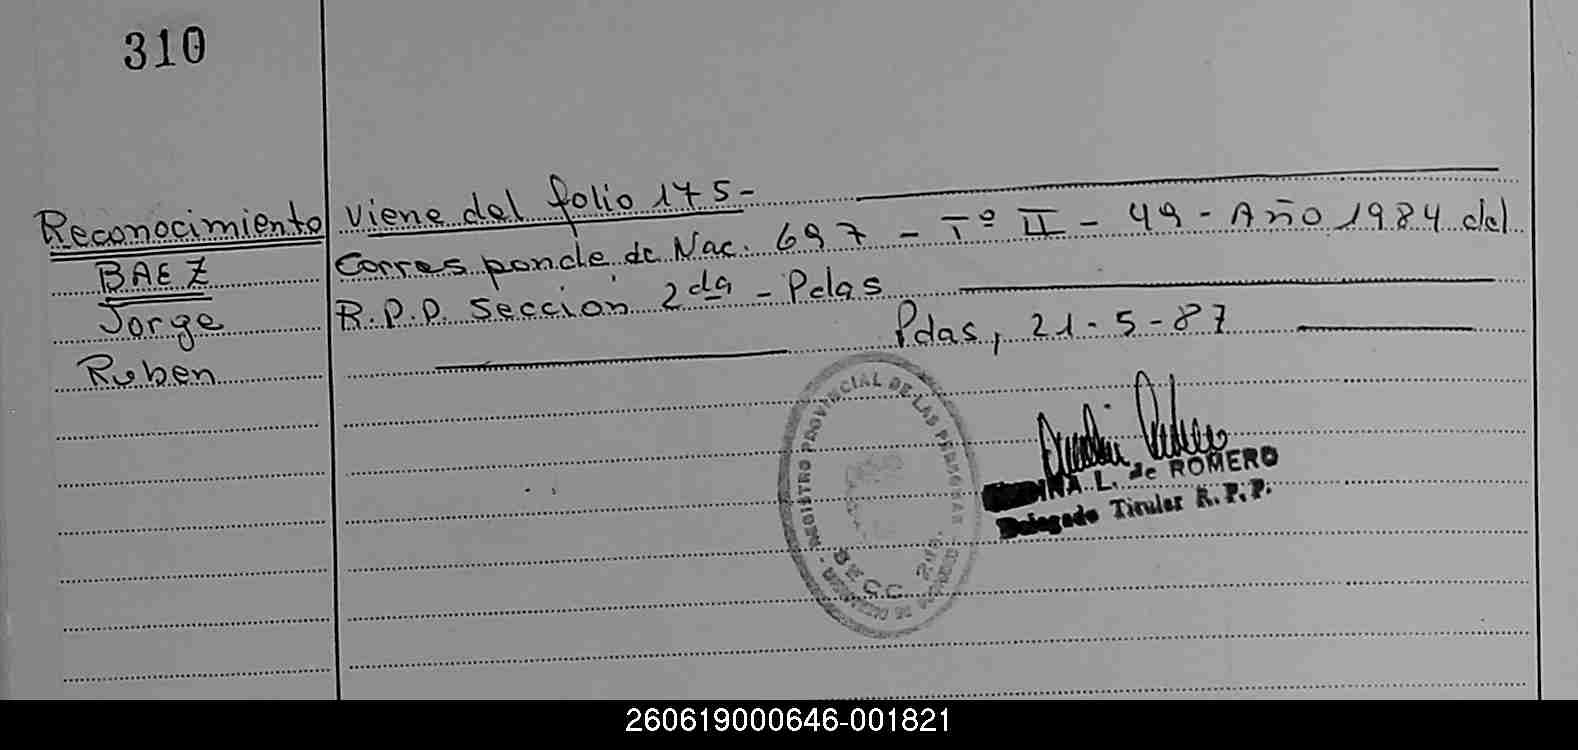 310
viene del folio 175-
Reconocimiento
BAEZ
Jorge
Ruben
Corresponde de Nac. 697 - Tº II - 49 - Año 1984 del
R.P.P. Sección 2da - Pdas
Pdas, 21-5-87
REGISTRO PROVINCIAL DE LAS PERSONAS
SECC. 2da.
L. de ROMERO
Delegado Titular R.P.P.
260619000646-001821